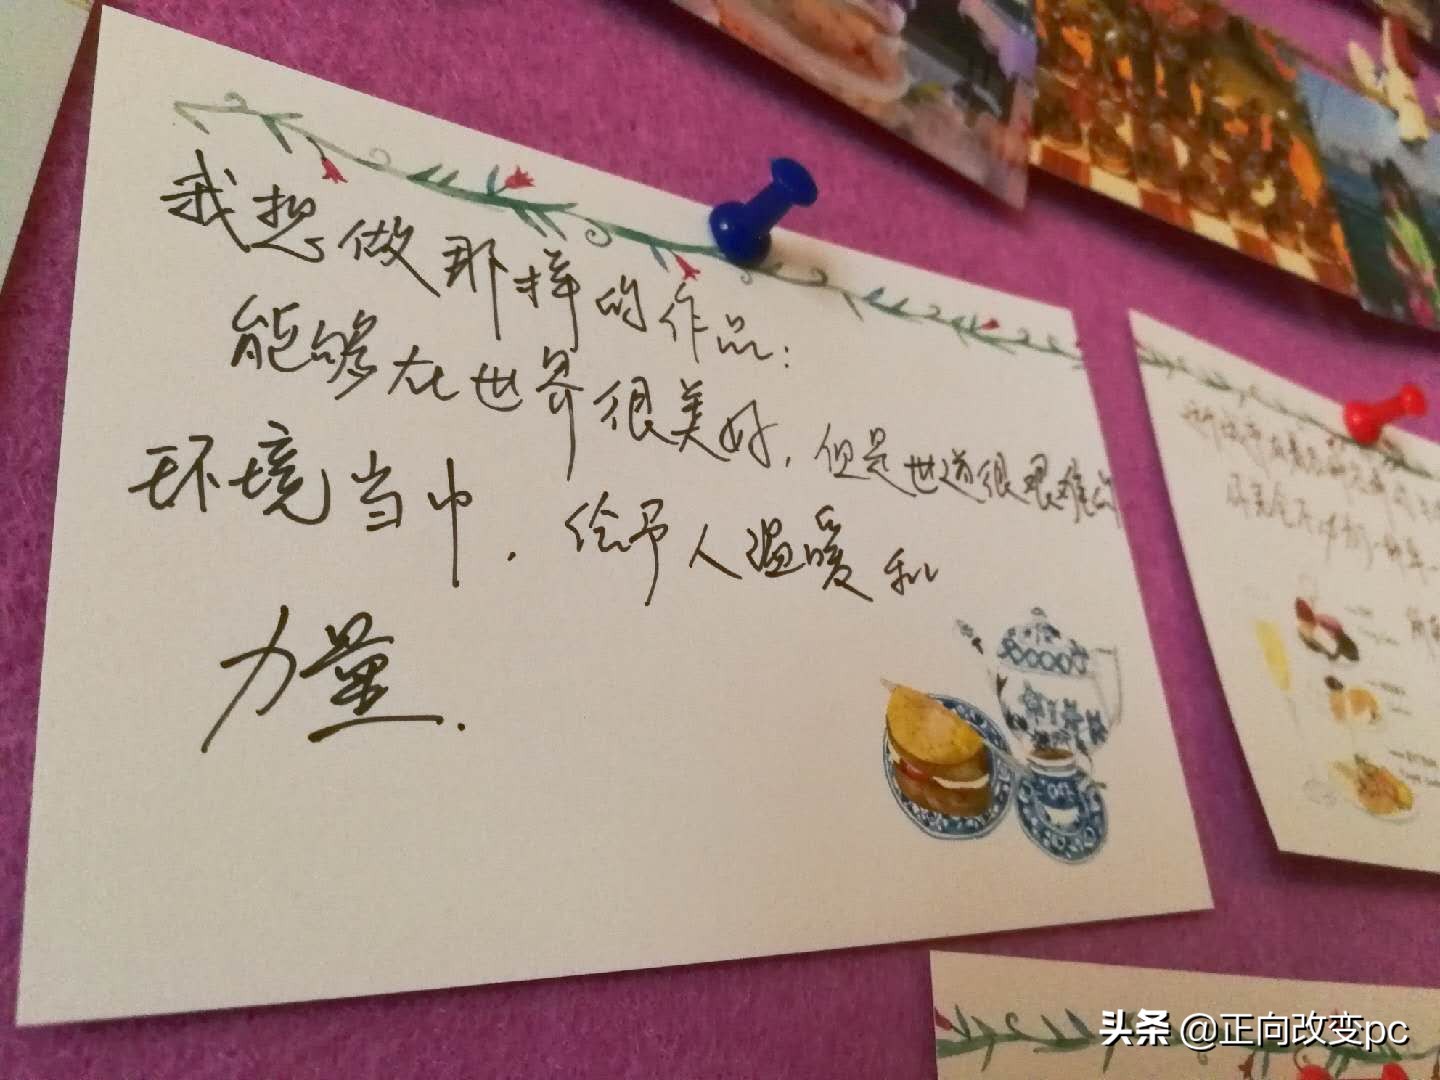 我想做那样的作品：
能够在世界很美好，但是世道很艰难的
环境当中，给予人温暖和
力量.
头条 @正向改变pc